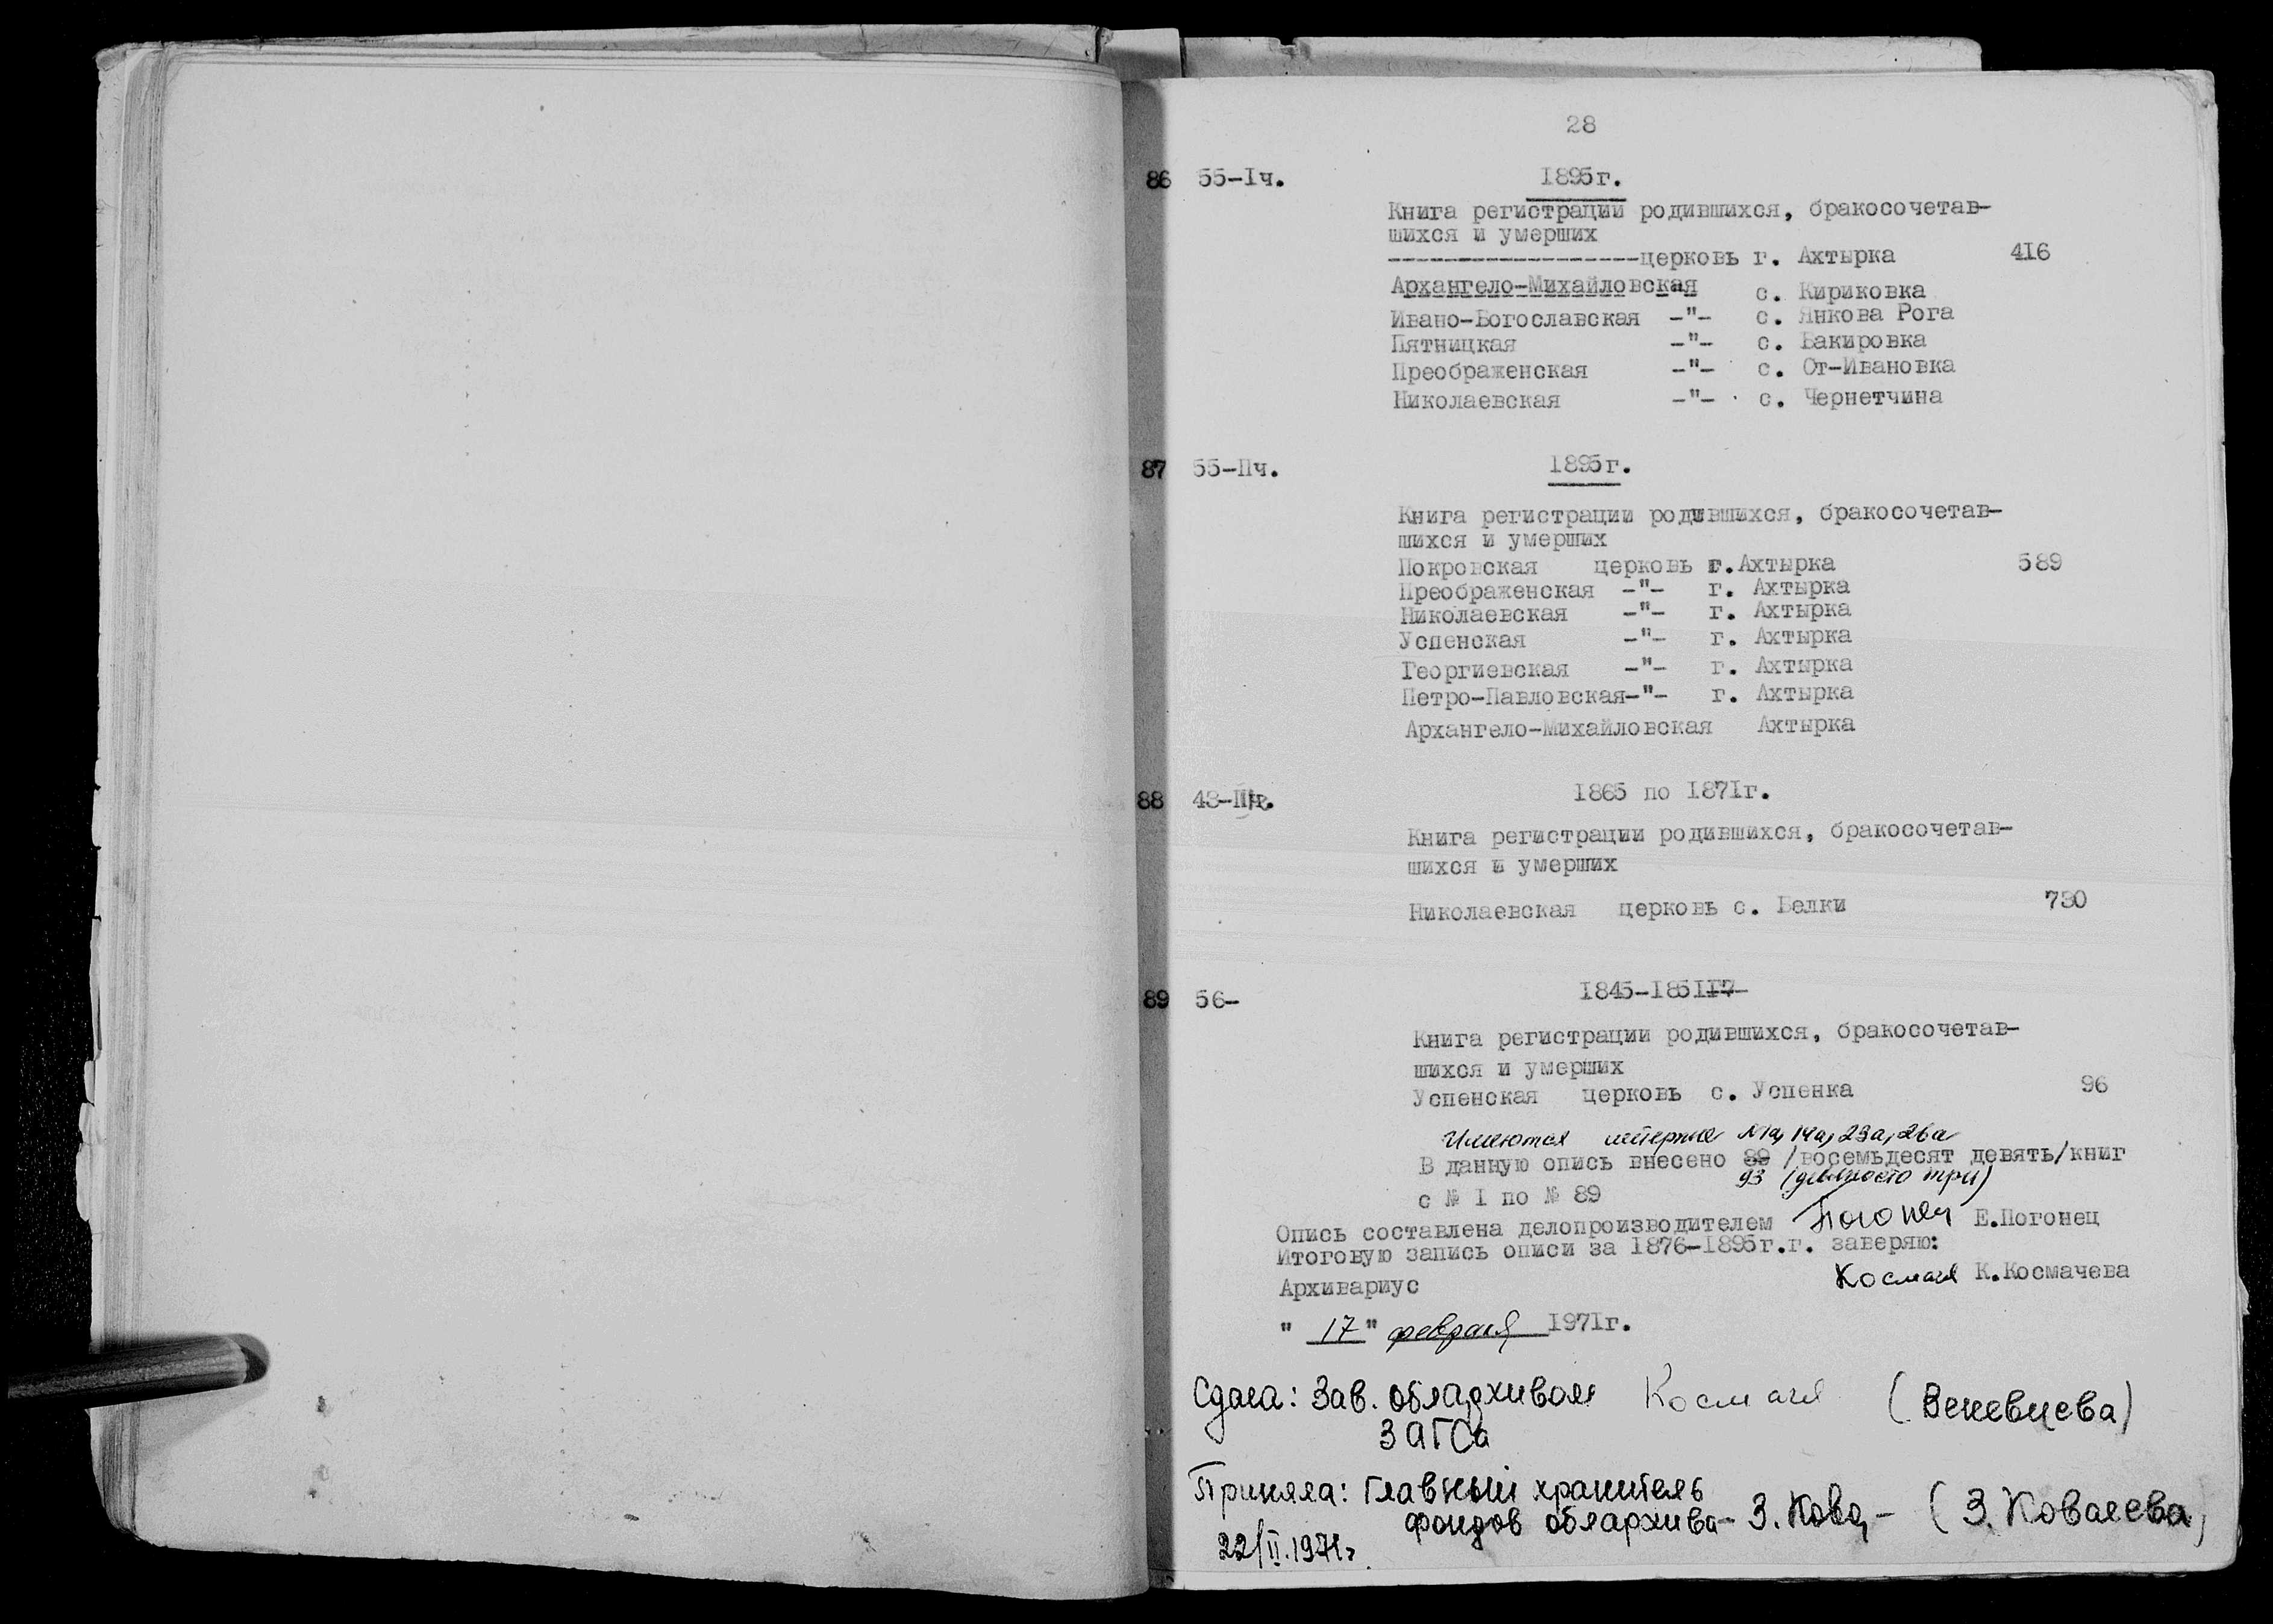 28
86 55-Iч. 1895г.
Книга регистрации родившихся, бракосочетав-
шихся и умерших
------------------церковь г. Ахтырка 416
Архангело-Михайловская с. Кириковка
Ивано-Богославская -"- с. Янкова Рога
Пятницкая -"- с. Бакировка
Преображенская -"- с. От-Ивановка
Николаевская -"- с. Чернетчина
87 55-IIч. 1895г.
Книга регистрации родившихся, бракосочетав-
шихся и умерших
Покровская церковь г.Ахтырка 589
Преображенская -"- г. Ахтырка
Николаевская -"- г. Ахтырка
Успенская -"- г. Ахтырка
Георгиевская -"- г. Ахтырка
Петро-Павловская-"- г. Ахтырка
Архангело-Михайловская Ахтырка
88 43- 1865 по 1871г.
Книга регистрации родившихся, бракосочетав-
шихся и умерших
Николаевская церковь с. Белки 730
89 56- 1845-1851
Книга регистрации родившихся, бракосочетав-
шихся и умерших
Успенская церковь с. Успенка 96
Имеются литерные №1а, 14а, 23а, 26а
В данную опись внесено 89 /восемьдесят девять/книг
93 (девяносто три)
с № I по № 89
Опись составлена делопроизводителем Погонец Е.Погонец
Итоговую запись описи за 1876-1895г.г. заверяю:
Архивариус К.Космачева
" 17 " февраля 1971г.
Сдала: Зав. облархивом (Веневцева)
ЗАГСа
Приняла: Главный хранитель
фондов облархива- З. Кова- (З. Ковалева)
22/II.1971г.